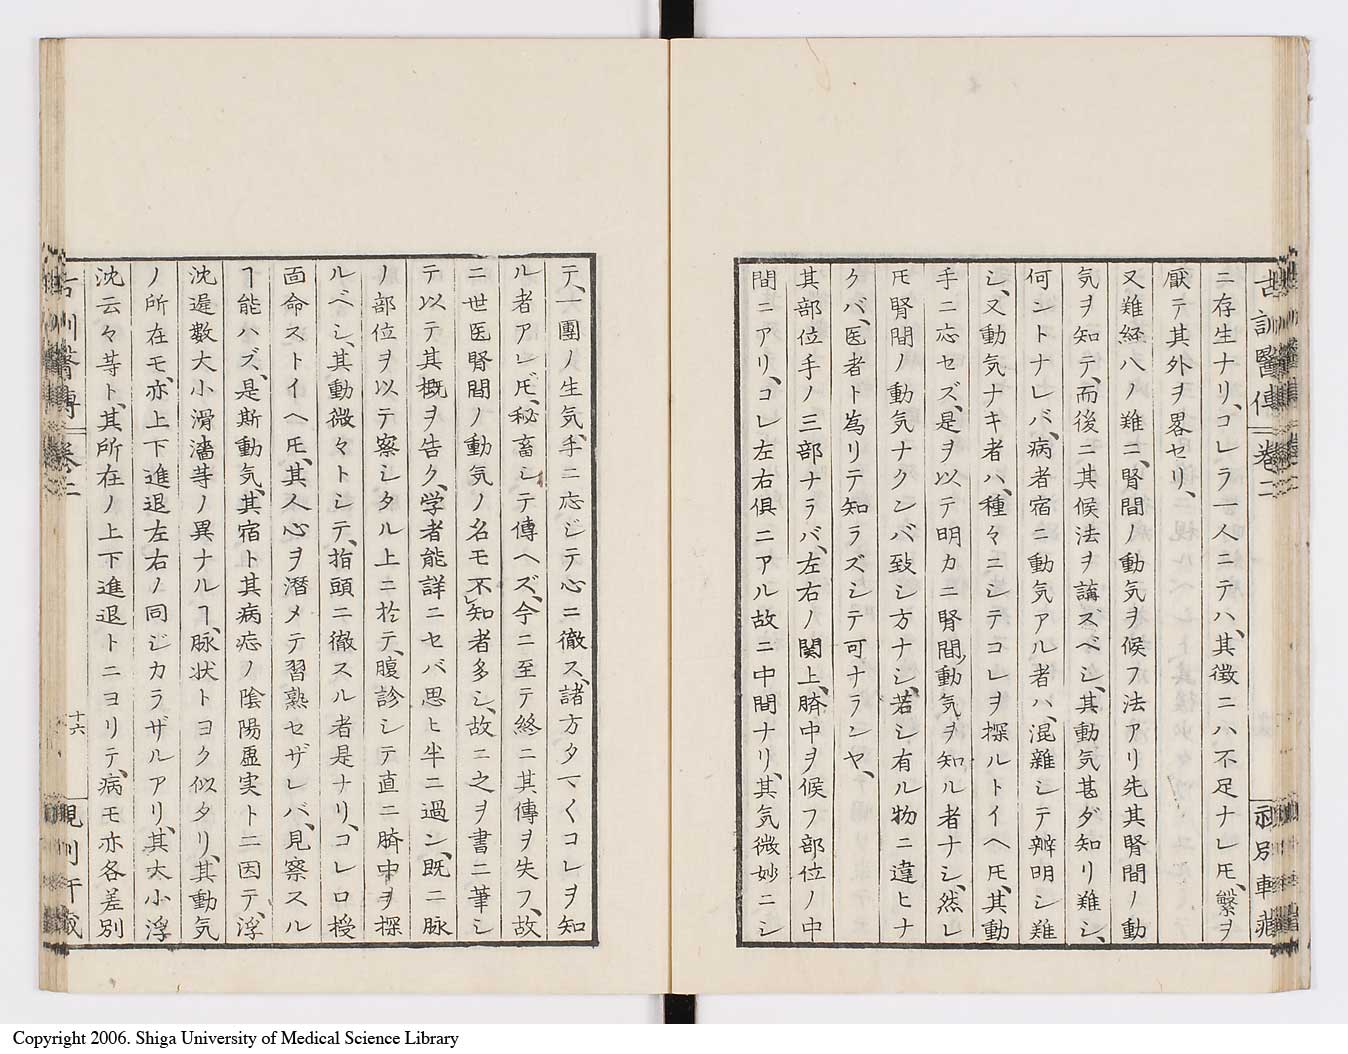 古訓醫傳 卷二
ニ存生ナリ、コレラ吾人ニテハ、其徴ニハ不足ナレ𪜈、繁ヲ
厭テ其外ヲ畧セリ、
又難経八ノ難ニ、腎間ノ動気ヲ候フ法アリ先其腎間ノ動
気ヲ知テ、而後ニ其候法ヲ講ズベシ、其動気甚ダ知リ難シ、
何ントナレバ、病者宿ニ動気アル者ハ、混雜シテ辨明シ難
シ、又動気ナキ者ハ、種々ニシテコレヲ探ルトイヘ𪜈、其動
手ニ応セズ、是ヲ以テ明カニ腎間ノ動気ヲ知ル者ナシ、然レ
𪜈腎間ノ動気ナクンバ致シ方ナシ、若シ有ル物ニ違ヒナ
クバ、医者ト為リテ知ラズシテ可ナランヤ、
其部位手ノ三部ナラバ、左右ノ関上、臍中ヲ候フ部位ノ中
間ニアリ、コレ左右俱ニアル故ニ中間ナリ、其気微妙ニシ
テ、一團ノ生気、手ニ応ジテ心ニ徹ス、諸方タマ〱コレヲ知
ル者アレ𪜈、秘畜シテ傳ヘズ、今ニ至テ終ニ其傳ヲ失フ、故
ニ世医腎間ノ動気ノ名モ不知者多シ、故ニ之ヲ書ニ筆シ
テ以テ其概ヲ告ク、学者能詳ニセバ思ヒ半ニ過ン、既ニ脉
ノ部位ヲ以テ察シタル上ニ於テ、腹診シテ直ニ臍中ヲ探
ルベシ、其動微々トシテ、指頭ニ徹スル者是ナリ、コレ口授
面命ストイヘ𪜈、其人心ヲ潜メテ習熟セザレバ、見察スル
ヿ能ハズ、是斯動気、其宿ト其病症ノ陰陽虚実ト二因テ、浮
沈遅数大小滑濇等ノ異ナルヿ、脉状トヨク似タリ、其動気
ノ所在モ、亦上下進退左右ノ同ジカラザルアリ、其大小浮
沈云々等ト、其所在ノ上下進退トニヨリテ、病モ亦各差別
十六